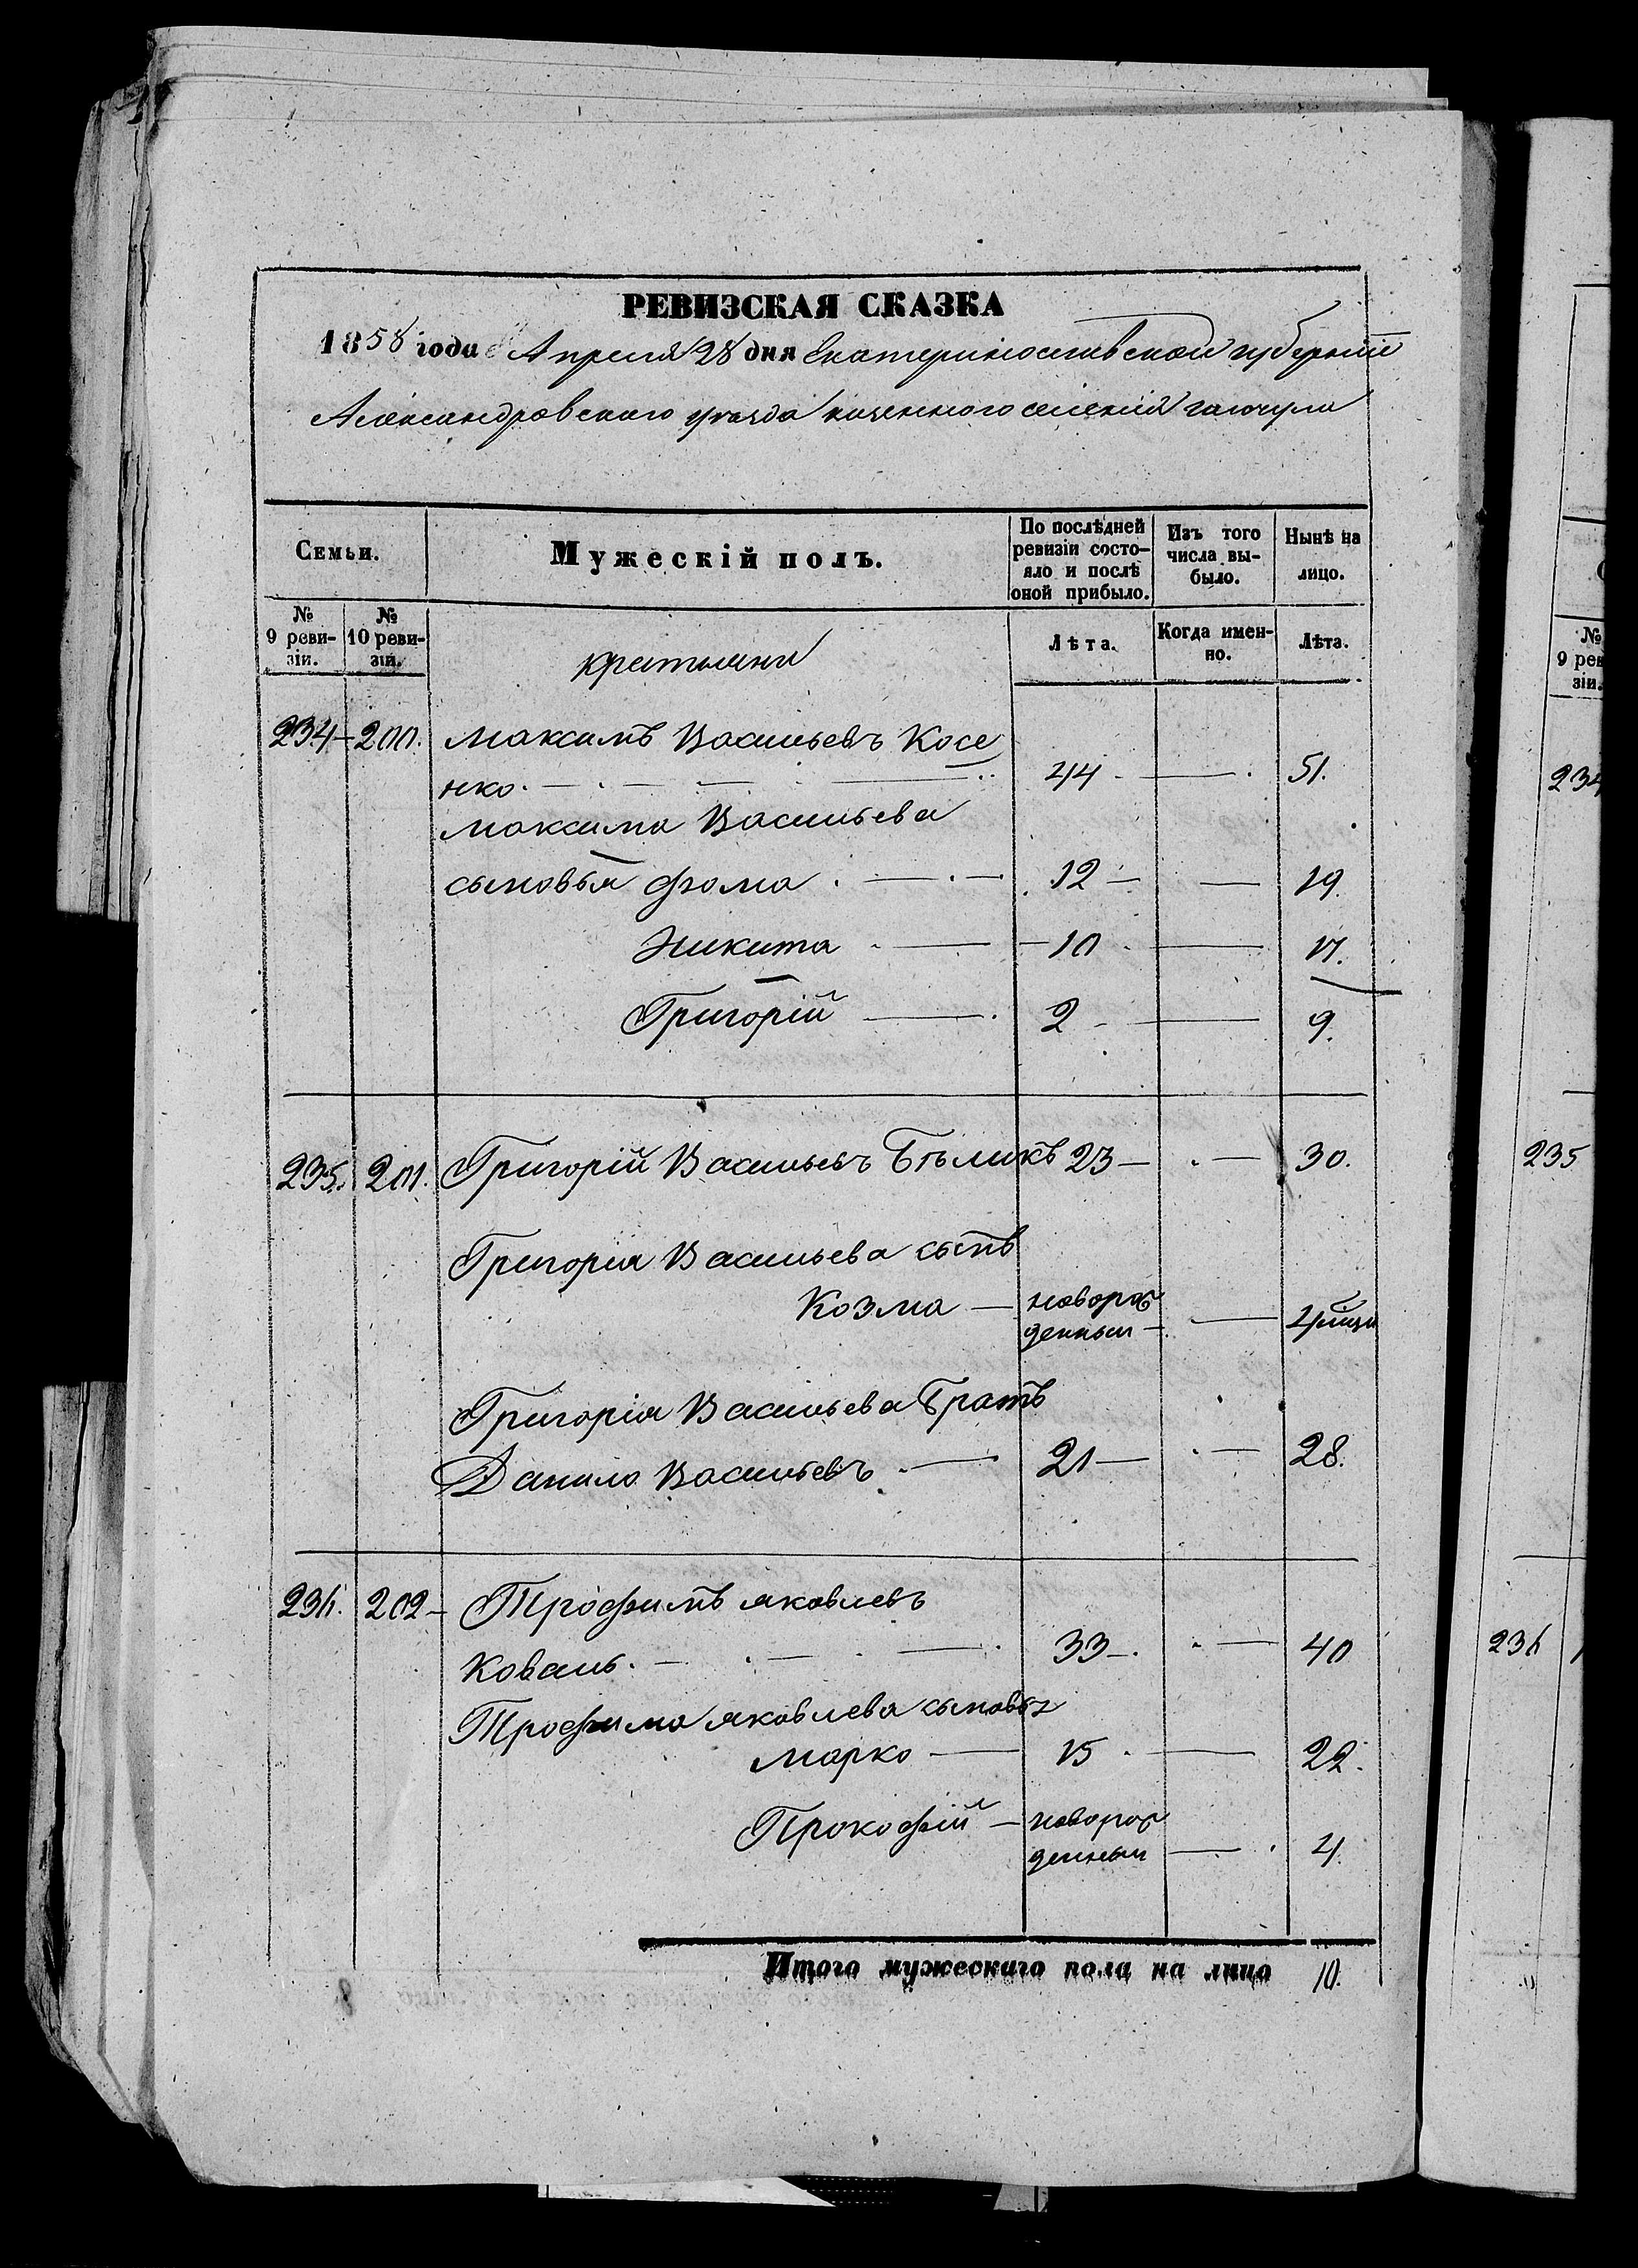 РЕВИЗСКАЯ СКАЗКА
1858 года Апреля 28 дня Екатеринославской губернiи
Александровского уезда казенного селенiя гайчула
Семьи.
Мужескій полъ.
По послѣдней ревизіи состо-
яло и послѣ оной прибыло.
Изъ того числа вы-
было.
Нынѣ на лицо.
№ 9 реви-
зіи.
№ 10 реви-
зіи.
Лѣта.
Когда имен-
но.
Лѣта.
234 – 200. Максимъ Васильевъ Косе
нко. 44 – 51.
Максима Васильева
сыновья фома 12 – 19.
Никита 10 – 17.
Григорій 2 – 9.
235. 201. Григорій Васильевъ Бѣликъ 23 – 30.
Григорiя Васильева сынъ
Козма – новорож
денный –
Григорія Васильева Братъ
Данило Васильевъ. 21 – 28.
236. 202 – Трофимъ яковлевъ
Коваль. 33 – 40
Трофима яковлева сыновья
Марко 15 – 22.
Прокофій – новорож
денный – 4.
Итого мужескаго пола на лицо 10.
№ 9 рев
зіи.
234
235
236